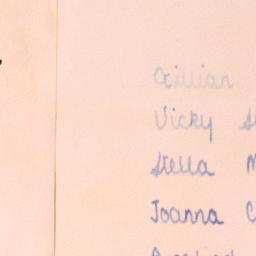 Gillian
Vicky
Stella M
Joanna C